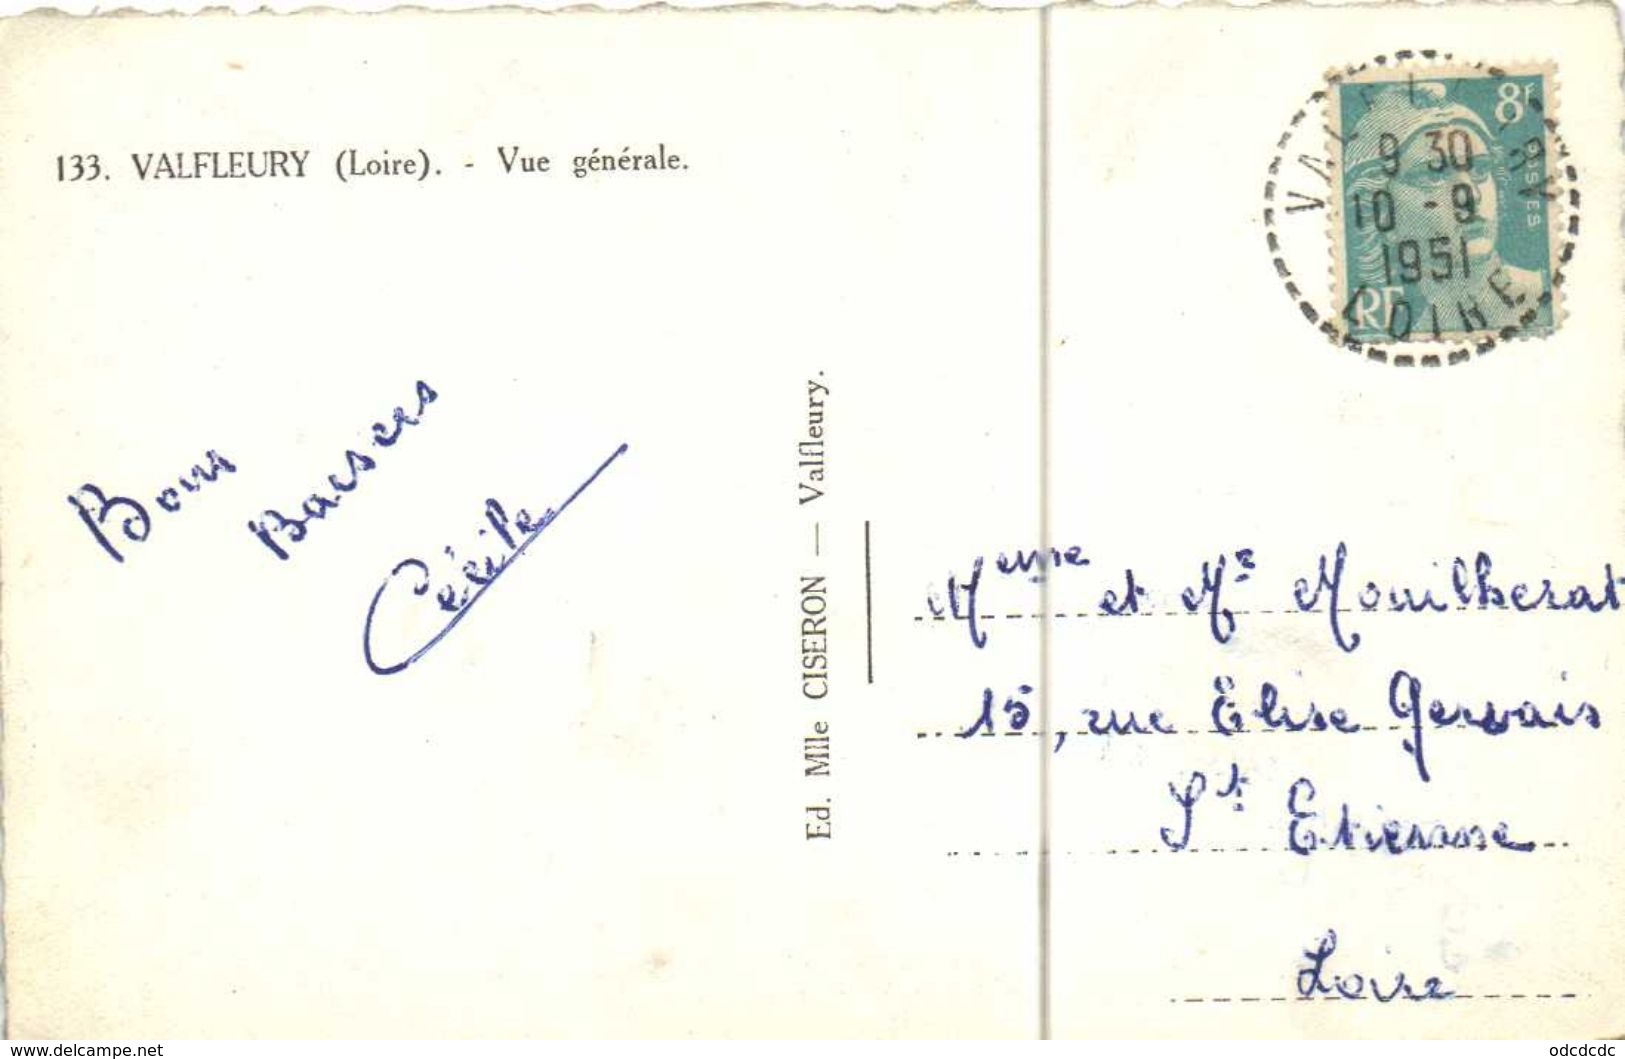 133. VALFLEURY (Loire). - Vue générale.
8F
VALFLEURY
9 30
10 -9
1951
LOIRE
RF
Bons
Baisers
Cécile
Ed. Mlle CISERON — Valfleury.
Mme et Mr Mouilherat
15, rue Elise Gervais
St Etienne
Loire
www.delcampe.net
odcdcdc